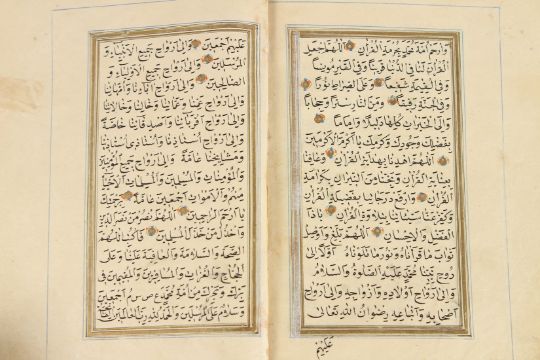 وارحم امة محمد بحرمة القرآن اللهم اجعل
القرآن لنا في الدنيا قرينا وفي القبر مونسا
وفي القيمة شفيعا وعلى الصراط نورا
وفي الجنة رفيقا ومن النار سترا وحجابا
والى الخيرات كلها دليلا واماما
بفضلك وجودك وكرمك يا اكرم الاكرمين
اللهم اهدنا بهداية القرآن وعافنا
بعناية القرآن ونجنا من النيران بكرامة
القرآن وارفع درجاتنا بفضيلة القرآن
وكفر عنا سيئاتنا بتلاوة القرآن يا ذا
الفضل والاحسان اللهم بلغ واوصل
ثواب ما قرأناه ونور ما تلوناه اولا الى
روح نبينا محمد عليه الصلوة والسلام
والى ارواح اولاده وازواجه والى ارواح
اصحابه واتباعه رضوان الله تعالى
عليهم
عليهم اجمعين والى ارواح جميع الانبياء و
المرسلين والى ارواح جميع الاولياء و
الصالحين والى ارواح آبائنا وامهاتنا
والى ارواح عمنا وعماتنا وخالنا وخالاتنا
والى ارواح اقربائنا واصدقائنا خاصة
والى ارواح استاذنا واستاذ استاذنا
ومشايخنا عامة والى ارواح جميع المؤمنين
والمؤمنات والمسلمين والمسلمات الاحياء
منهم والاموات اجمعين عامة برحمتك
يا ارحم الراحمين اللهم انصر من نصر الدين
واخذل من خذل المسلمين واكتب اللهم
الصحة والسلامة والعافية علينا وعلى
الحجاج والغزاة والمسافرين والمقيمين في
برك وبحرك من امة محمد اجمعين
وسلام على المرسلين والحمد لله رب العالمين